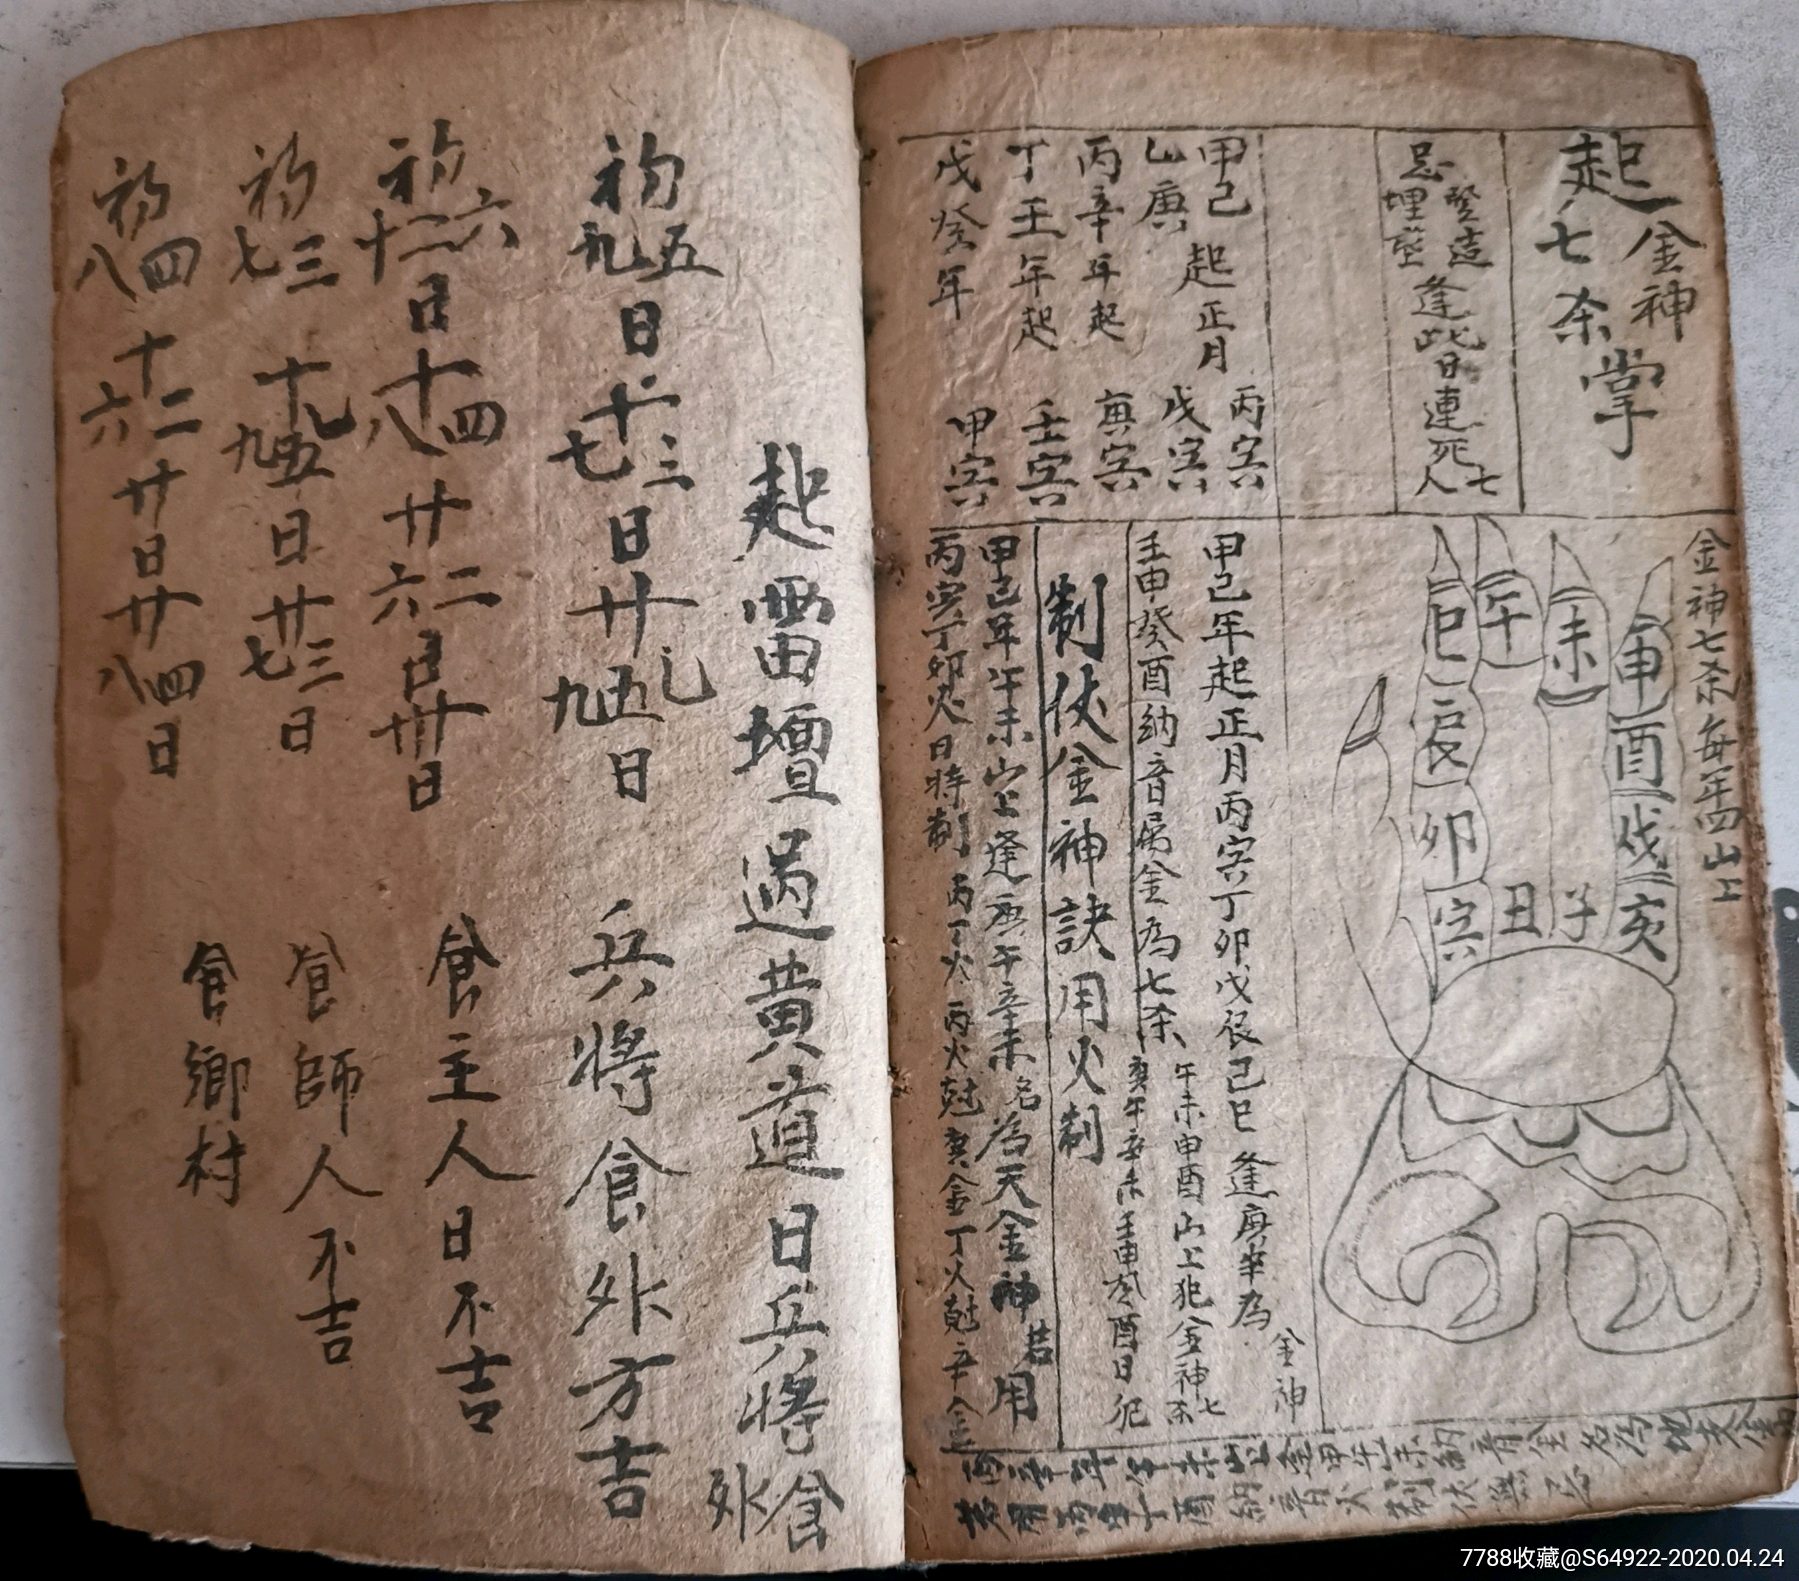 起金神七杀掌
忌竪造埋塟逢此日連死七人
甲己起正月丙寅
乙庚戊寅
丙辛年起庚寅
丁壬年起壬寅
戊癸年甲寅
金神七杀每年四山上
申酉戌亥
未
午
巳辰卯寅
丑子
甲己年起正月丙寅丁卯戊辰己巳逢庚辛為金神
壬申癸酉納音屬金為七杀午未申酉山上犯金神七杀庚午辛未壬申癸酉日犯
制伏金神訣用火制
甲己年午未山上逢庚午辛未名為天金神若用
丙寅丁卯火日時制丙丁火丙火尅庚金丁火尅辛金
起雷壇過黃道日兵將食外
初五九日十三七日廿乙五九日兵將食外方吉
初六十二日十四八廿二六日卅日食主人日不吉
初三七十乙五九日廿三七日食師人不吉
初四八十二六廿日廿四八日食鄉村
7788收藏@S64922-2020.04.24